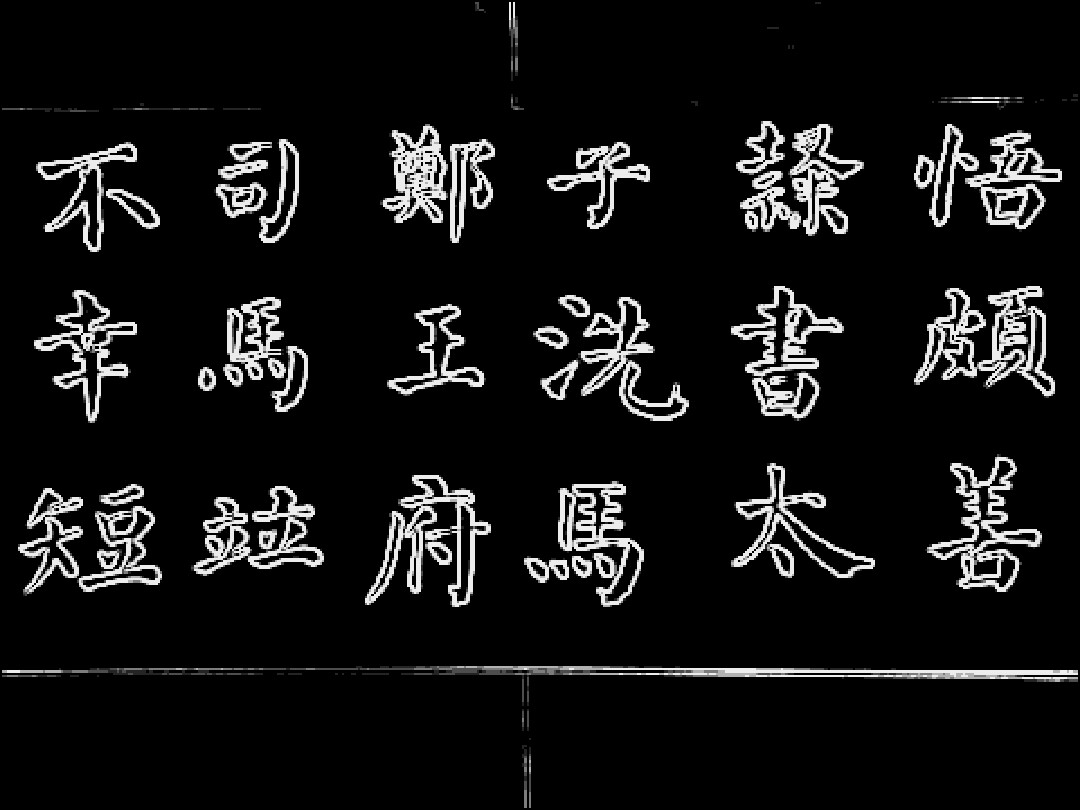 悟頗善
隷書太
子洗馬
鄭王府
司馬竝
不幸短